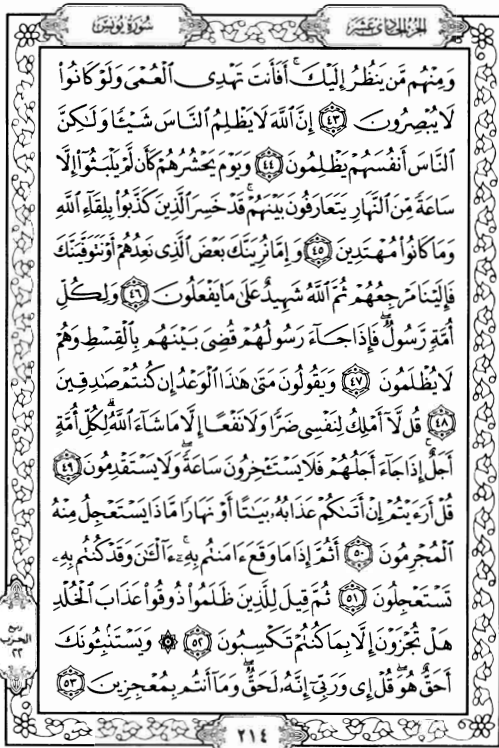 سُورَةُ يُونُسَ
الجُزْءُ الحَادِي عَشَرَ
وَمِنْهُم مَّن يَنظُرُ إِلَيْكَ ۚ أَفَأَنتَ تَهْدِى الْعُمْىَ وَلَوْ كَانُوا۟
لَا يُبْصِرُونَ ٤٣ إِنَّ اللَّهَ لَا يَظْلِمُ النَّاسَ شَيْـًٔا وَلَـٰكِنَّ
النَّاسَ أَنفُسَهُمْ يَظْلِمُونَ ٤٤ وَيَوْمَ يَحْشُرُهُمْ كَأَن لَّمْ يَلْبَثُوٓا۟ إِلَّا
سَاعَةً مِّنَ النَّهَارِ يَتَعَارَفُونَ بَيْنَهُمْ ۚ قَدْ خَسِرَ الَّذِينَ كَذَّبُوا۟ بِلِقَآءِ اللَّهِ
وَمَا كَانُوا۟ مُهْتَدِينَ ٤٥ وَإِمَّا نُرِيَنَّكَ بَعْضَ الَّذِى نَعِدُهُمْ أَوْ نَتَوَفَّيَنَّكَ
فَإِلَيْنَا مَرْجِعُهُمْ ثُمَّ اللَّهُ شَهِيدٌ عَلَىٰ مَا يَفْعَلُونَ ٤٦ وَلِكُلِّ
أُمَّةٍ رَّسُولٌ ۖ فَإِذَا جَآءَ رَسُولُهُمْ قُضِىَ بَيْنَهُم بِالْقِسْطِ وَهُمْ
لَا يُظْلَمُونَ ٤٧ وَيَقُولُونَ مَتَىٰ هَـٰذَا الْوَعْدُ إِن كُنتُمْ صَـٰدِقِينَ
٤٨ قُل لَّآ أَمْلِكُ لِنَفْسِى ضَرًّا وَلَا نَفْعًا إِلَّا مَا شَآءَ اللَّهُ ۗ لِكُلِّ أُمَّةٍ
أَجَلٌ ۚ إِذَا جَآءَ أَجَلُهُمْ فَلَا يَسْتَـْٔخِرُونَ سَاعَةً ۖ وَلَا يَسْتَقْدِمُونَ ٤٩
قُلْ أَرَءَيْتُمْ إِنْ أَتَىٰكُمْ عَذَابُهُۥ بَيَـٰتًا أَوْ نَهَارًا مَّاذَا يَسْتَعْجِلُ مِنْهُ
الْمُجْرِمُونَ ٥٠ أَثُمَّ إِذَا مَا وَقَعَ ءَامَنتُم بِهِۦٓ ۚ ءَآلْـَٔـٰنَ وَقَدْ كُنتُم بِهِۦ
تَسْتَعْجِلُونَ ٥١ ثُمَّ قِيلَ لِلَّذِينَ ظَلَمُوا۟ ذُوقُوا۟ عَذَابَ الْخُلْدِ
هَلْ تُجْزَوْنَ إِلَّا بِمَا كُنتُمْ تَكْسِبُونَ ٥٢ ۞ وَيَسْتَنۢبِـُٔونَكَ
أَحَقٌّ هُوَ ۖ قُلْ إِى وَرَبِّىٓ إِنَّهُۥ لَحَقٌّ ۖ وَمَآ أَنتُم بِمُعْجِزِينَ ٥٣
ربع
الحزب
٢٢
٢١٤